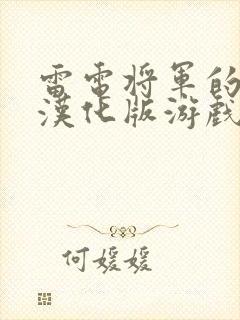 雷電将軍的
漢化版游戲
何媛媛